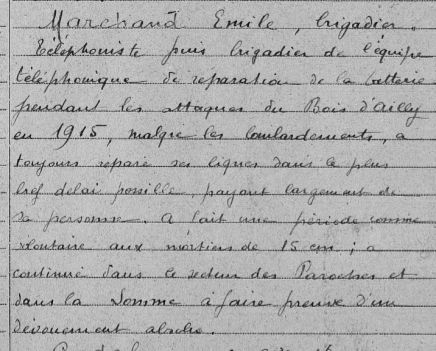 Marchand Emile, brigadier.
Téléphoniste puis brigadier de l'équipe
téléphonique de réparation de la batterie
pendant les attaques du Bois d'Ailly
en 1915, malgré les bombardements, a
toujours réparé ses lignes dans le plus
bref délai possible, payant largement de
sa personne. A fait une période comme
volontaire aux mortiers de 15 cm ; a
continué dans le secteur des Paroches et
dans la Somme à faire preuve d'un
dévouement absolu.